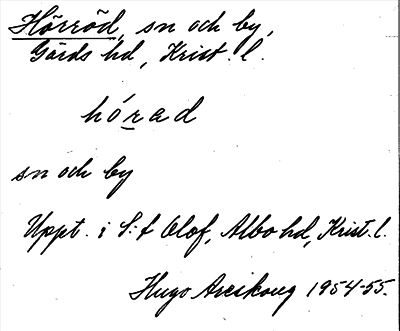 Hörröd, sn och by,
Gärds hd, Krist. l.
hó̱rad
sn och by
Uppt. i S:t Olof, Albo hd, Krist. l.
Hugo Areskoug 1954-55.